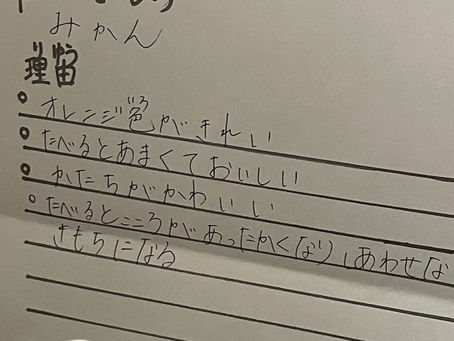 みかん
りゆう
理由
○オレンジ色がきれい
○たべるとあまくておいしい
○かたちがかわいい
○たべるとこころがあったかくなりしあわせな
きもちになる